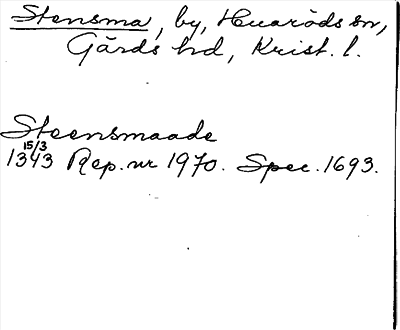 Stensma, by, Huaröds sn,
Gärds hd, Krist. l.
Steensmaade
15/3
1343 Rep. nr 1970. Spec. 1693.